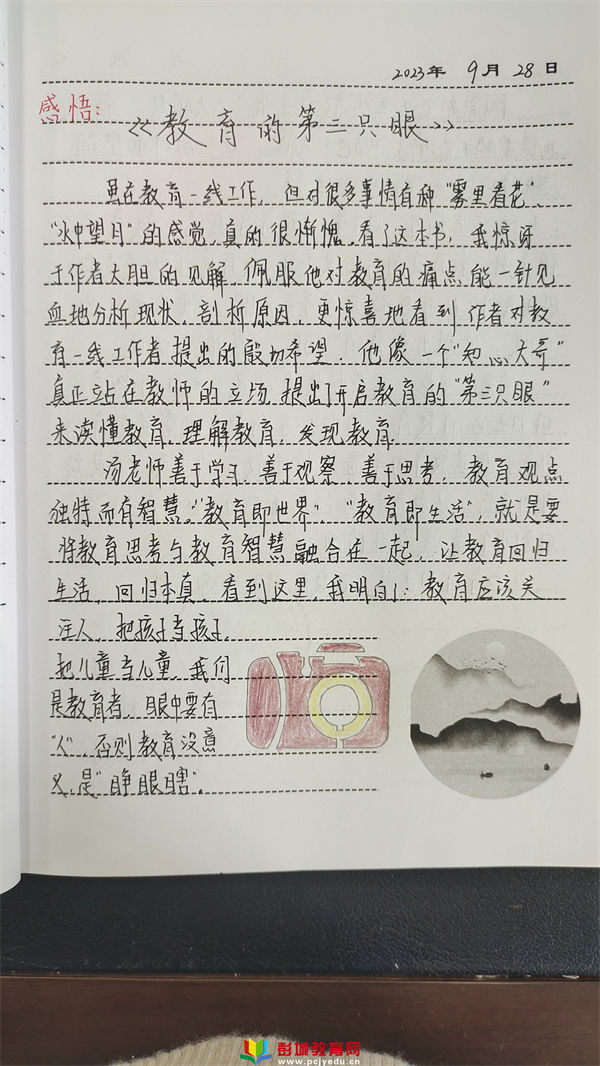 2023年 9月 28日
感悟:
《教育的第三只眼》
虽在教育一线工作,但对很多事情有种"雾里看花"、
"水中望月"的感觉,真的很惭愧。看了这本书,我惊讶
于作者大胆的见解,佩服他对教育的痛点能一针见
血地分析现状,剖析原因,更惊喜地看到作者对教
育一线工作者提出的殷切希望。他像一个"知心大哥"
真正站在教师的立场,提出了开启教育的"第三只眼"
来读懂教育,理解教育,发现教育。
汤老师善于学习,善于观察,善于思考,教育观点
独特而有智慧。"教育即世界","教育即生活",就是要
将教育思考与教育智慧融合在一起,让教育回归
生活,回归本真。看到这里,我明白了:教育应该关
注人,把孩子当孩子,
把儿童当儿童,我们
是教育者,眼中要有
"人",否则教育没意
义,是"睁眼瞎"。
彭城教育网
www.pcjyedu.cn